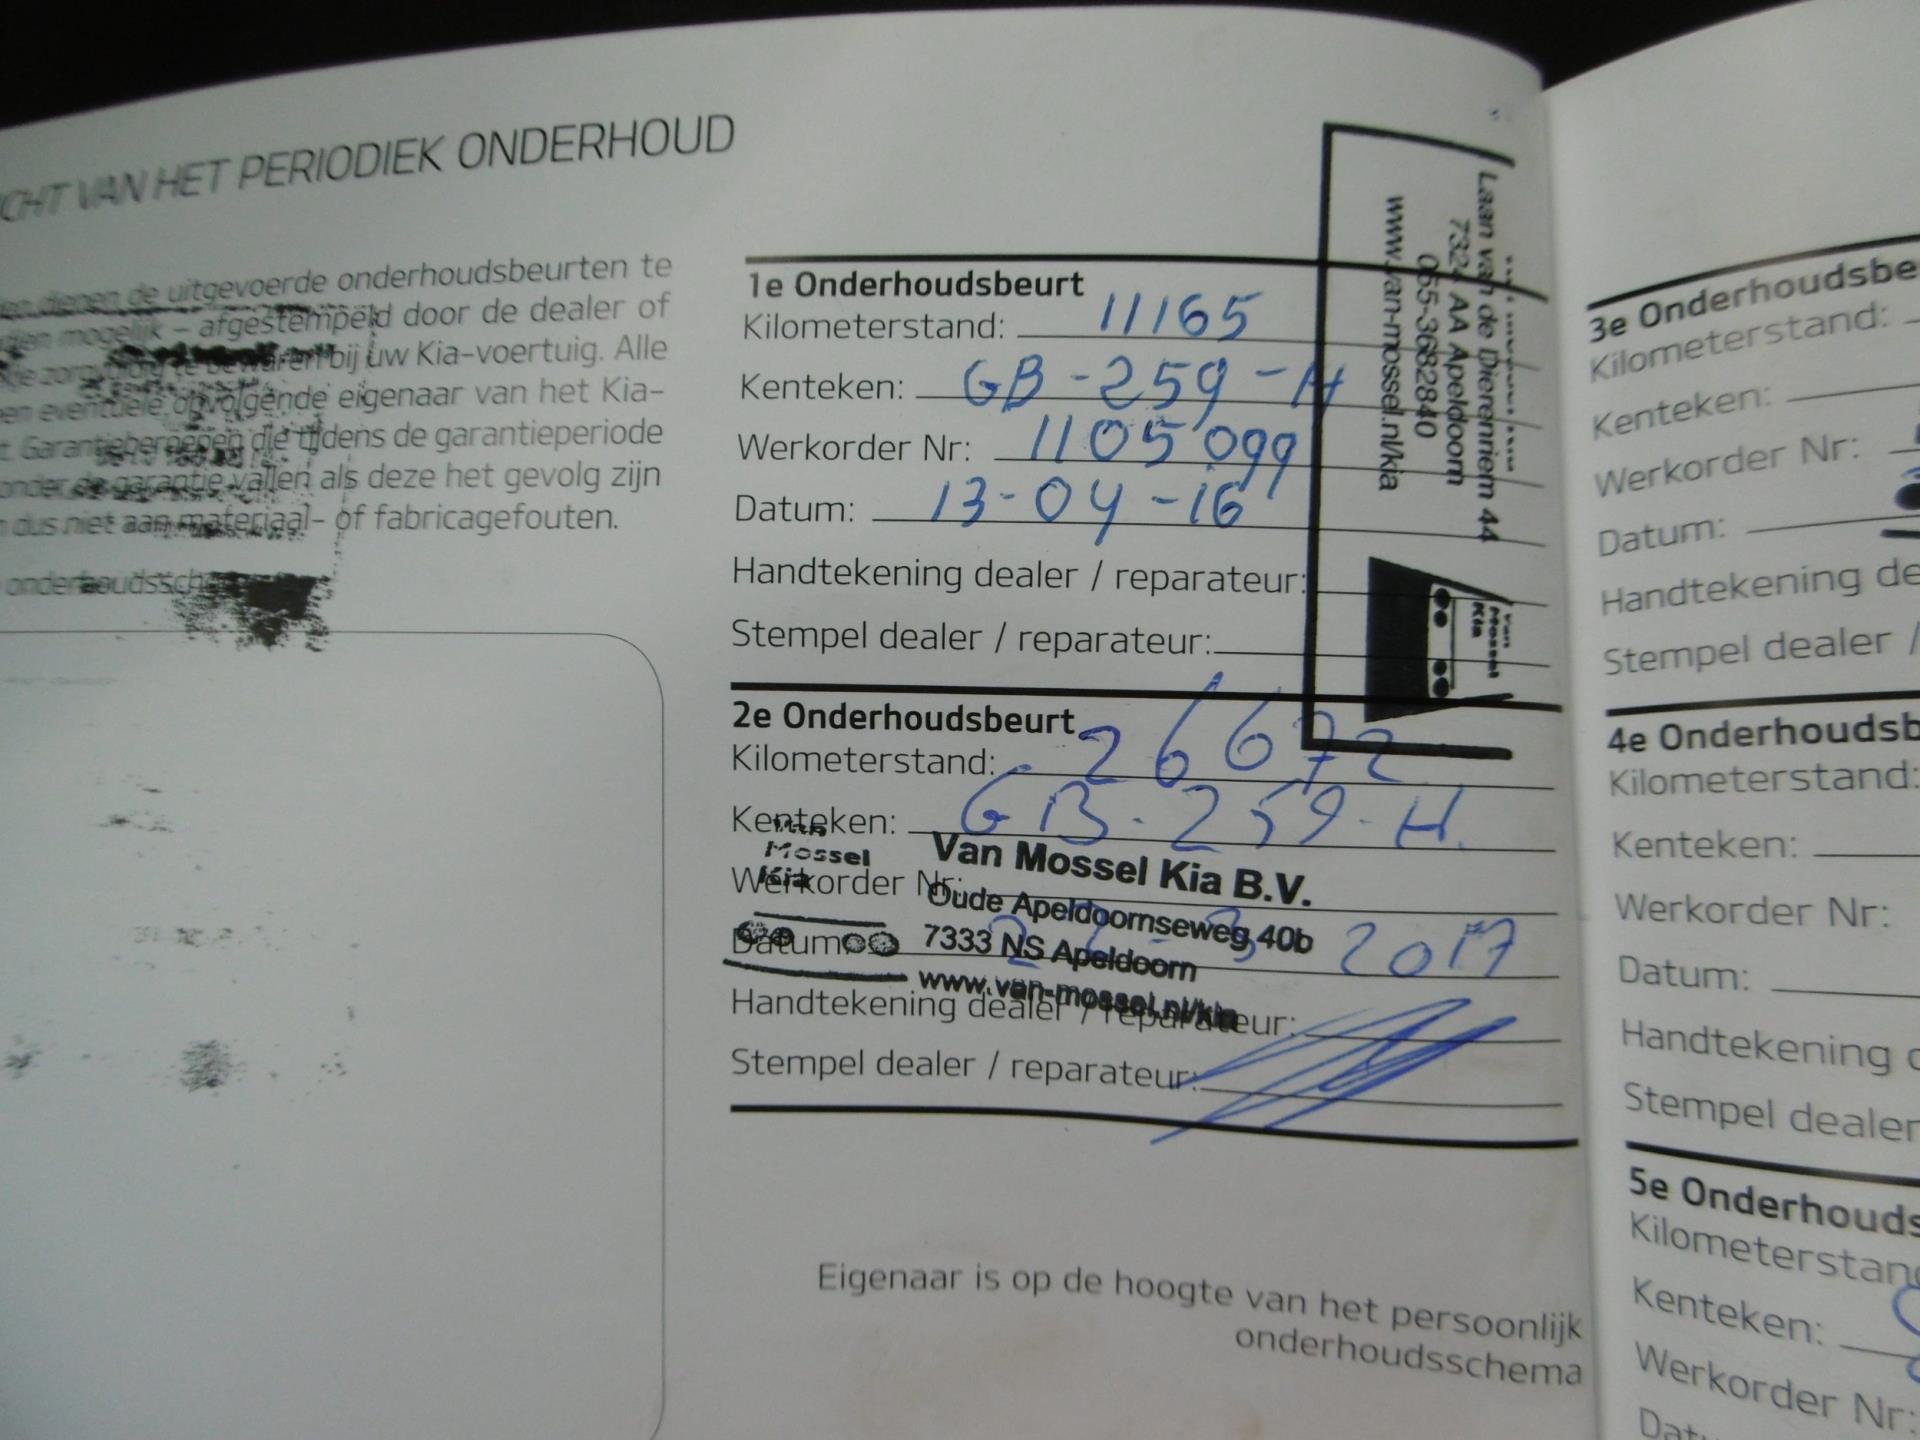 CHT VAN HET PERIODIEK ONDERHOUD
dienen de uitgevoerde onderhoudsbeurten te
mogelijk – afgestempeld door de dealer of
te bewaren bij uw Kia-voertuig. Alle
eventuele opvolgende eigenaar van het Kia-
t. Garantieberoepen die tijdens de garantieperiode
onder de garantie vallen als deze het gevolg zijn
n dus niet aan materiaal- of fabricagefouten.
1e Onderhoudsbeurt
Kilometerstand: 11165
Kenteken: GB-259-H
Werkorder Nr: 1105099
Datum: 13-04-16
Handtekening dealer / reparateur:
Stempel dealer / reparateur:
Laan van de Dierenriem 44
7324 AA Apeldoorn
055-3682840
www.van-mossel.nl/kia
Van
Mossel
Kia
2e Onderhoudsbeurt
Kilometerstand: 26672
Kenteken: GB-259-H.
Werkorder Nr:
Datum: 2017
Handtekening dealer / reparateur:
Stempel dealer / reparateur:
Van
Mossel
Kia
Van Mossel Kia B.V.
Oude Apeldoornseweg 40b
7333 NS Apeldoorn
www.van-mossel.nl/kia
Eigenaar is op de hoogte van het persoonlijk
onderhoudsschema
3e Onderhoudsbe
Kilometerstand:
Kenteken:
Werkorder Nr:
Datum:
Handtekening de
Stempel dealer /
4e Onderhoudsb
Kilometerstand:
Kenteken:
Werkorder Nr:
Datum:
Handtekening d
Stempel dealer
5e Onderhouds
Kilometerstand
Kenteken:
Werkorder Nr:
Dat